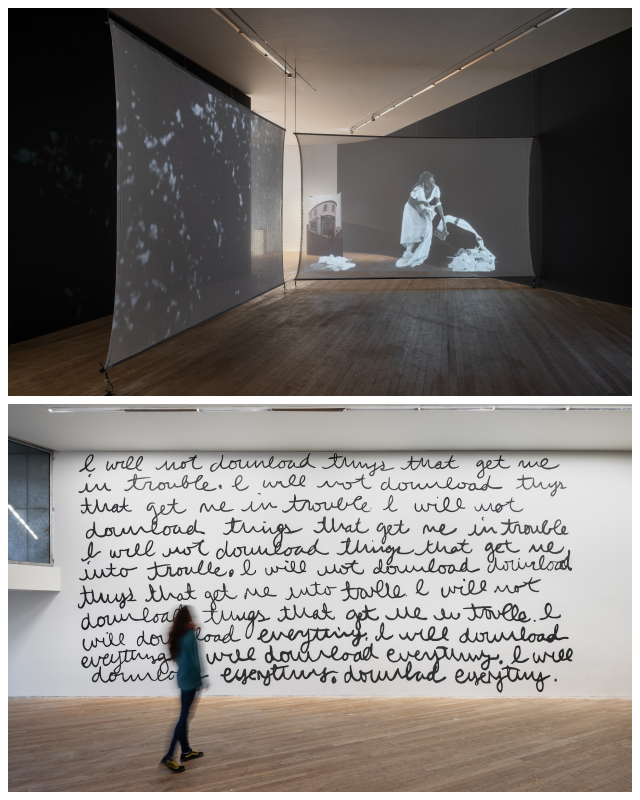 I will not download things that get me
in trouble. I will not download thigs
that get me in trouble I will not
download things that get me in trouble
I will not download things that get me
into trouble. I will not download download
things that get me into trouble I will not
download things that get me in trouble. I
will download everything. I will download
everything I will download everything. I will
download everything. download everything.